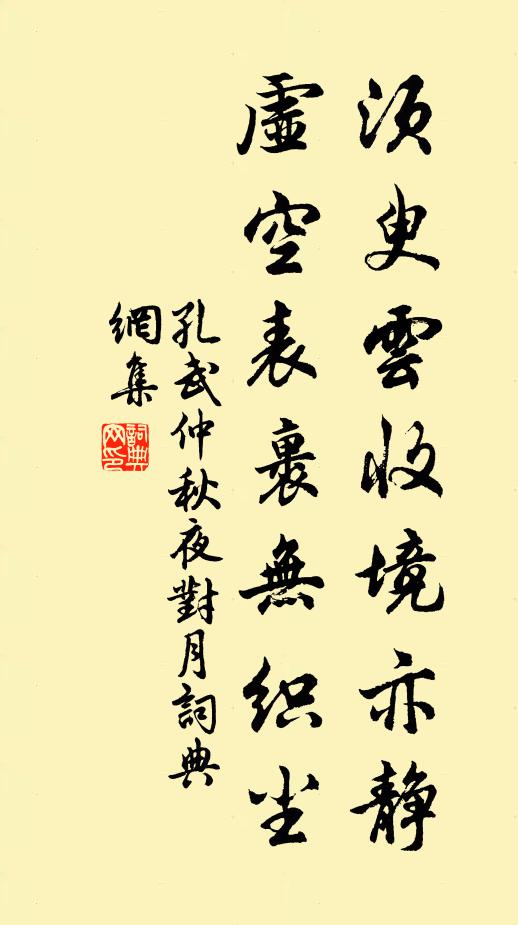 须臾雲收境亦静
虛空表裏無织尘
孔武仲秋夜對月詞典
網集
詞典
网印